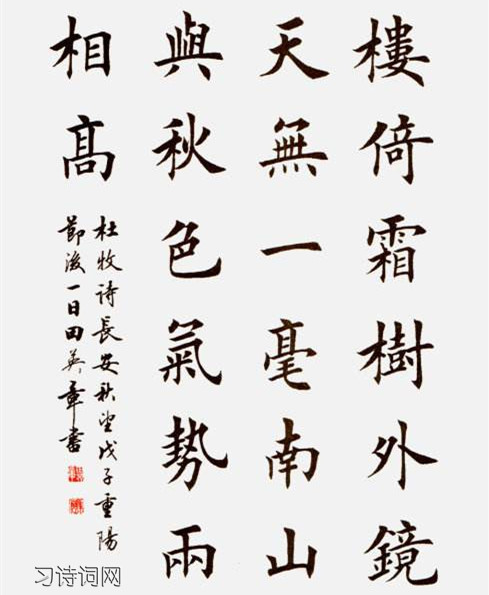 樓倚霜樹外鏡
天無一毫南山
與秋色氣勢兩
相髙
杜牧诗長安秋望戊子重陽
節後一日田英章書
习诗词网